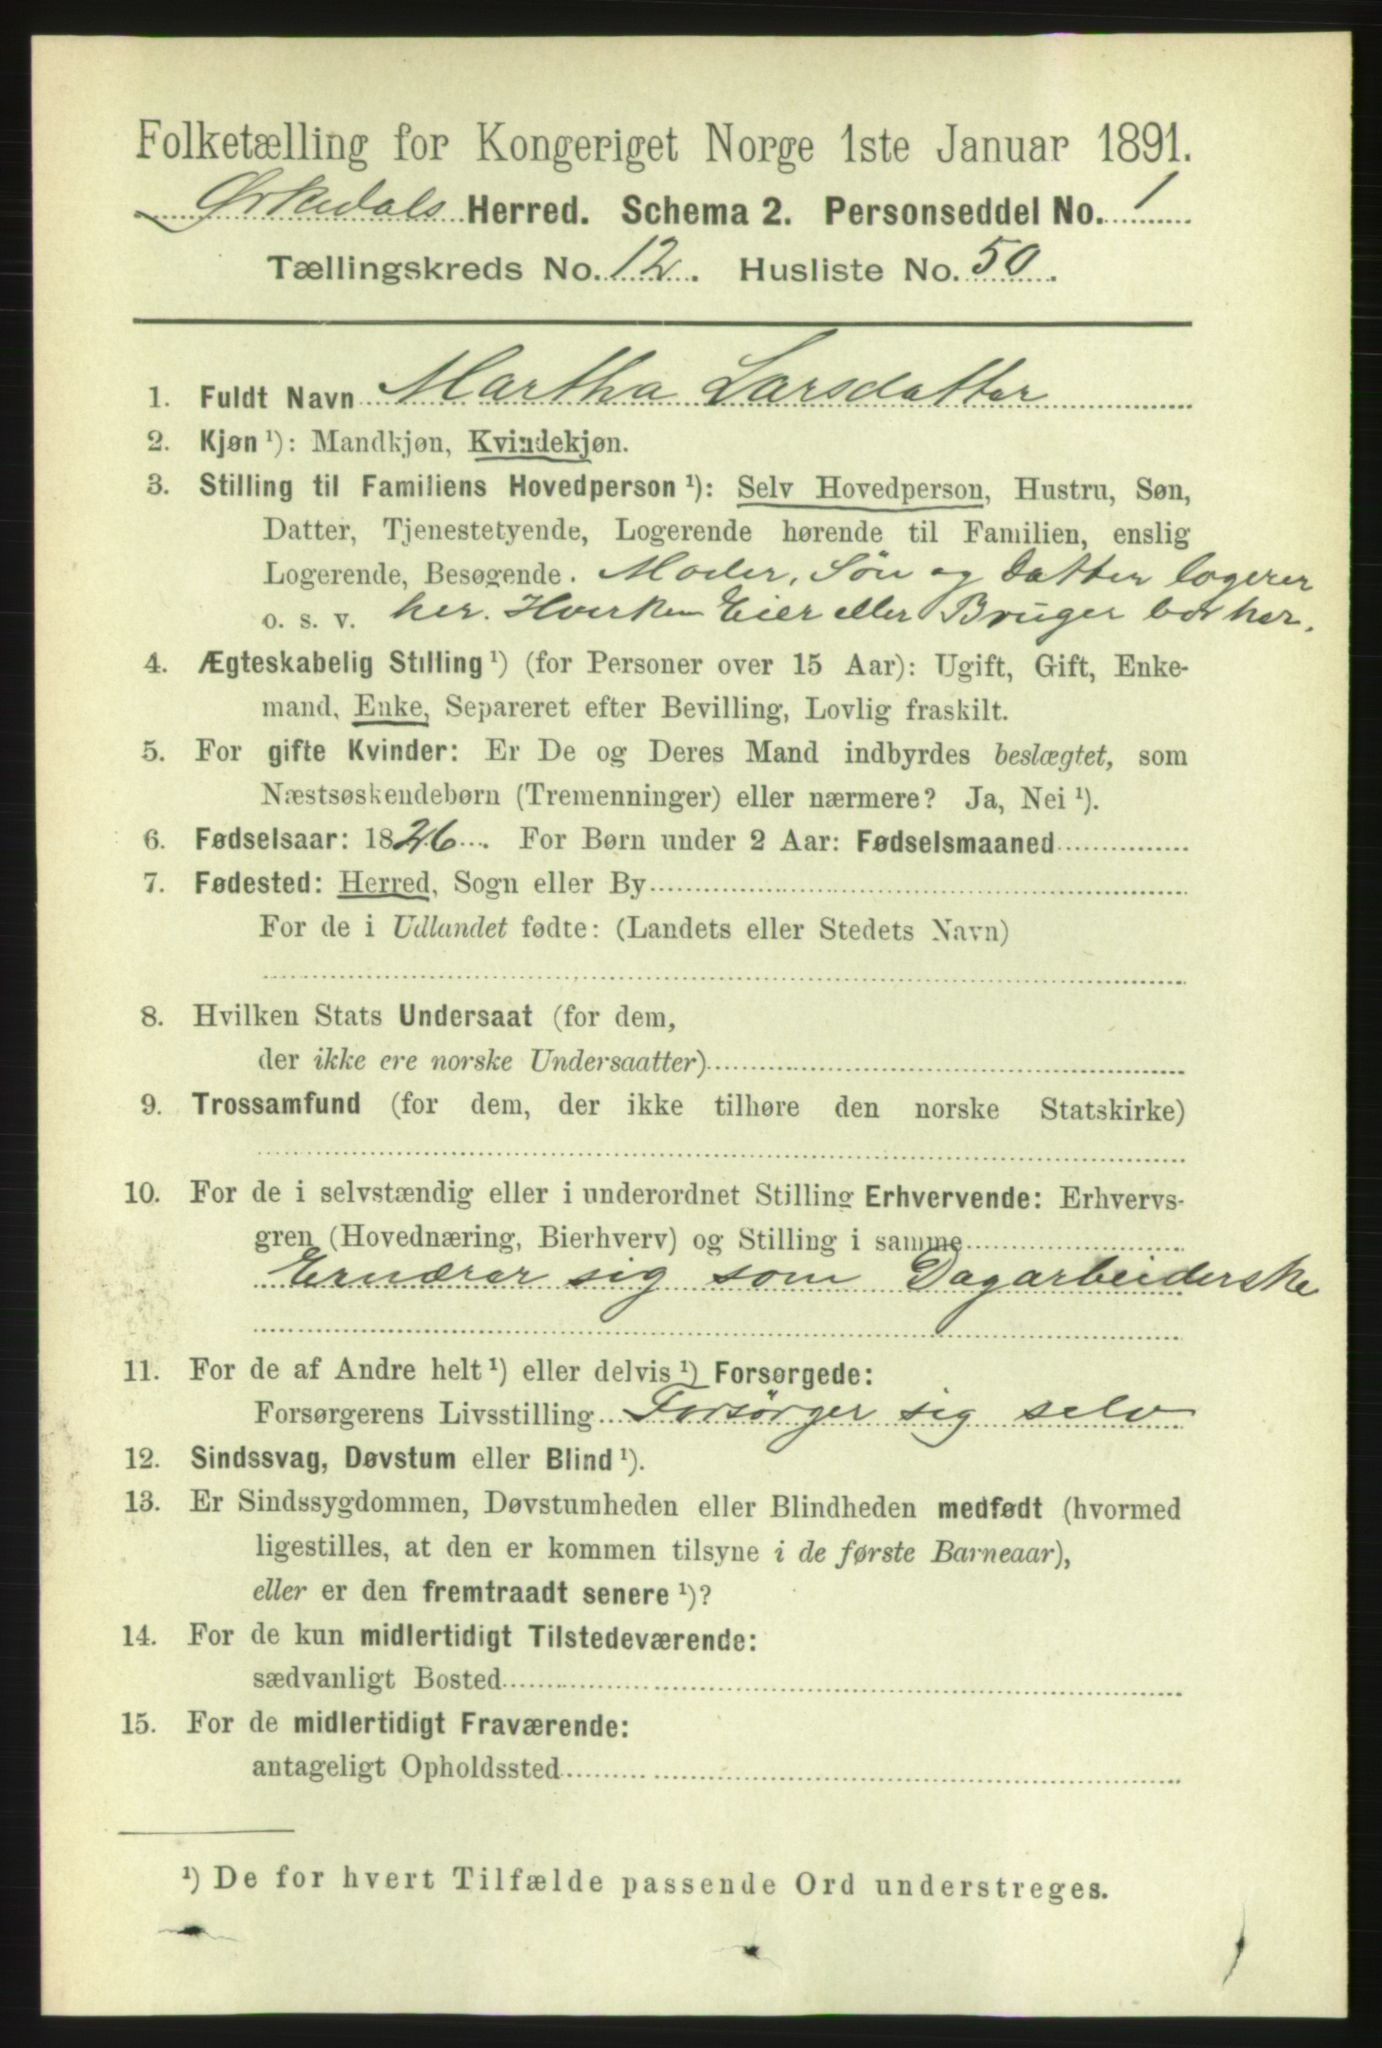 Folketælling for Kongeriget Norge 1ste Januar 1891.
Ørkedals Herred. Schema 2. Personseddel No. 1
Tællingskreds No. 12. Husliste No. 50.
1. Fuldt Navn Martha Larsdatter
2. Kjøn ¹): Mandkjøn, Kvindekjøn.
3. Stilling til Familiens Hovedperson ¹): Selv Hovedperson, Hustru, Søn,
Datter, Tjenestetyende, Logerende hørende til Familien, enslig
Logerende, Besøgende. Moder, Sön og Datter logerer
o. s. v. her. Hverken Eier eller Bruger bor her.
4. Ægteskabelig Stilling ¹) (for Personer over 15 Aar): Ugift, Gift, Enke-
mand, Enke, Separeret efter Bevilling, Lovlig fraskilt.
5. For gifte Kvinder: Er De og Deres Mand indbyrdes beslægtet, som
Næstsøskendebørn (Tremenninger) eller nærmere? Ja, Nei ¹).
6. Fødselsaar: 1826. For Børn under 2 Aar: Fødselsmaaned
7. Fødested: Herred, Sogn eller By
For de i Udlandet fødte: (Landets eller Stedets Navn)
8. Hvilken Stats Undersaat (for dem,
der ikke ere norske Undersaatter)
9. Trossamfund (for dem, der ikke tilhøre den norske Statskirke)
10. For de i selvstændig eller i underordnet Stilling Erhvervende: Erhvervs-
gren (Hovednæring, Bierhverv) og Stilling i samme
Ernærer sig som Dagarbeiderske
11. For de af Andre helt ¹) eller delvis ¹) Forsørgede:
Forsørgerens Livsstilling Forsörger sig selv
12. Sindssvag, Døvstum eller Blind ¹).
13. Er Sindssygdommen, Døvstumheden eller Blindheden medfødt (hvormed
ligestilles, at den er kommen tilsyne i de første Barneaar),
eller er den fremtraadt senere ¹)?
14. For de kun midlertidigt Tilstedeværende:
sædvanligt Bosted
15. For de midlertidigt Fraværende:
antageligt Opholdssted
¹) De for hvert Tilfælde passende Ord understreges.